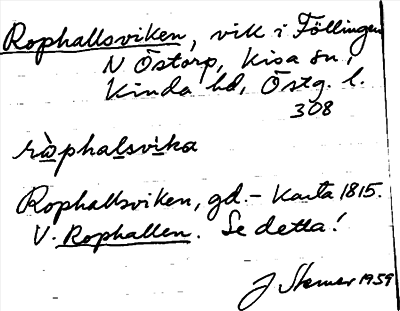 Rophallsviken, vik i Föllingen
N Östorp, Kisa sn,
Kinda hd, Östg. l.
308
ròphalsvika
Rophallsviken, gd. – Karta 1815.
V. Rophallen. Se detta!
J 1959